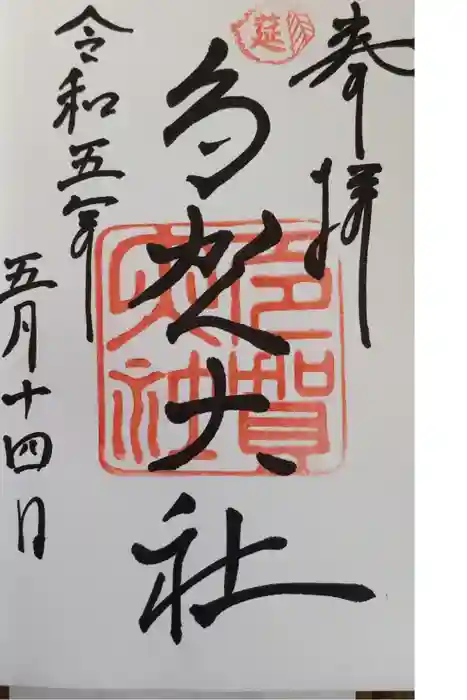 奉拝
延
多賀大社
多賀大社
令和五年
五月十四日